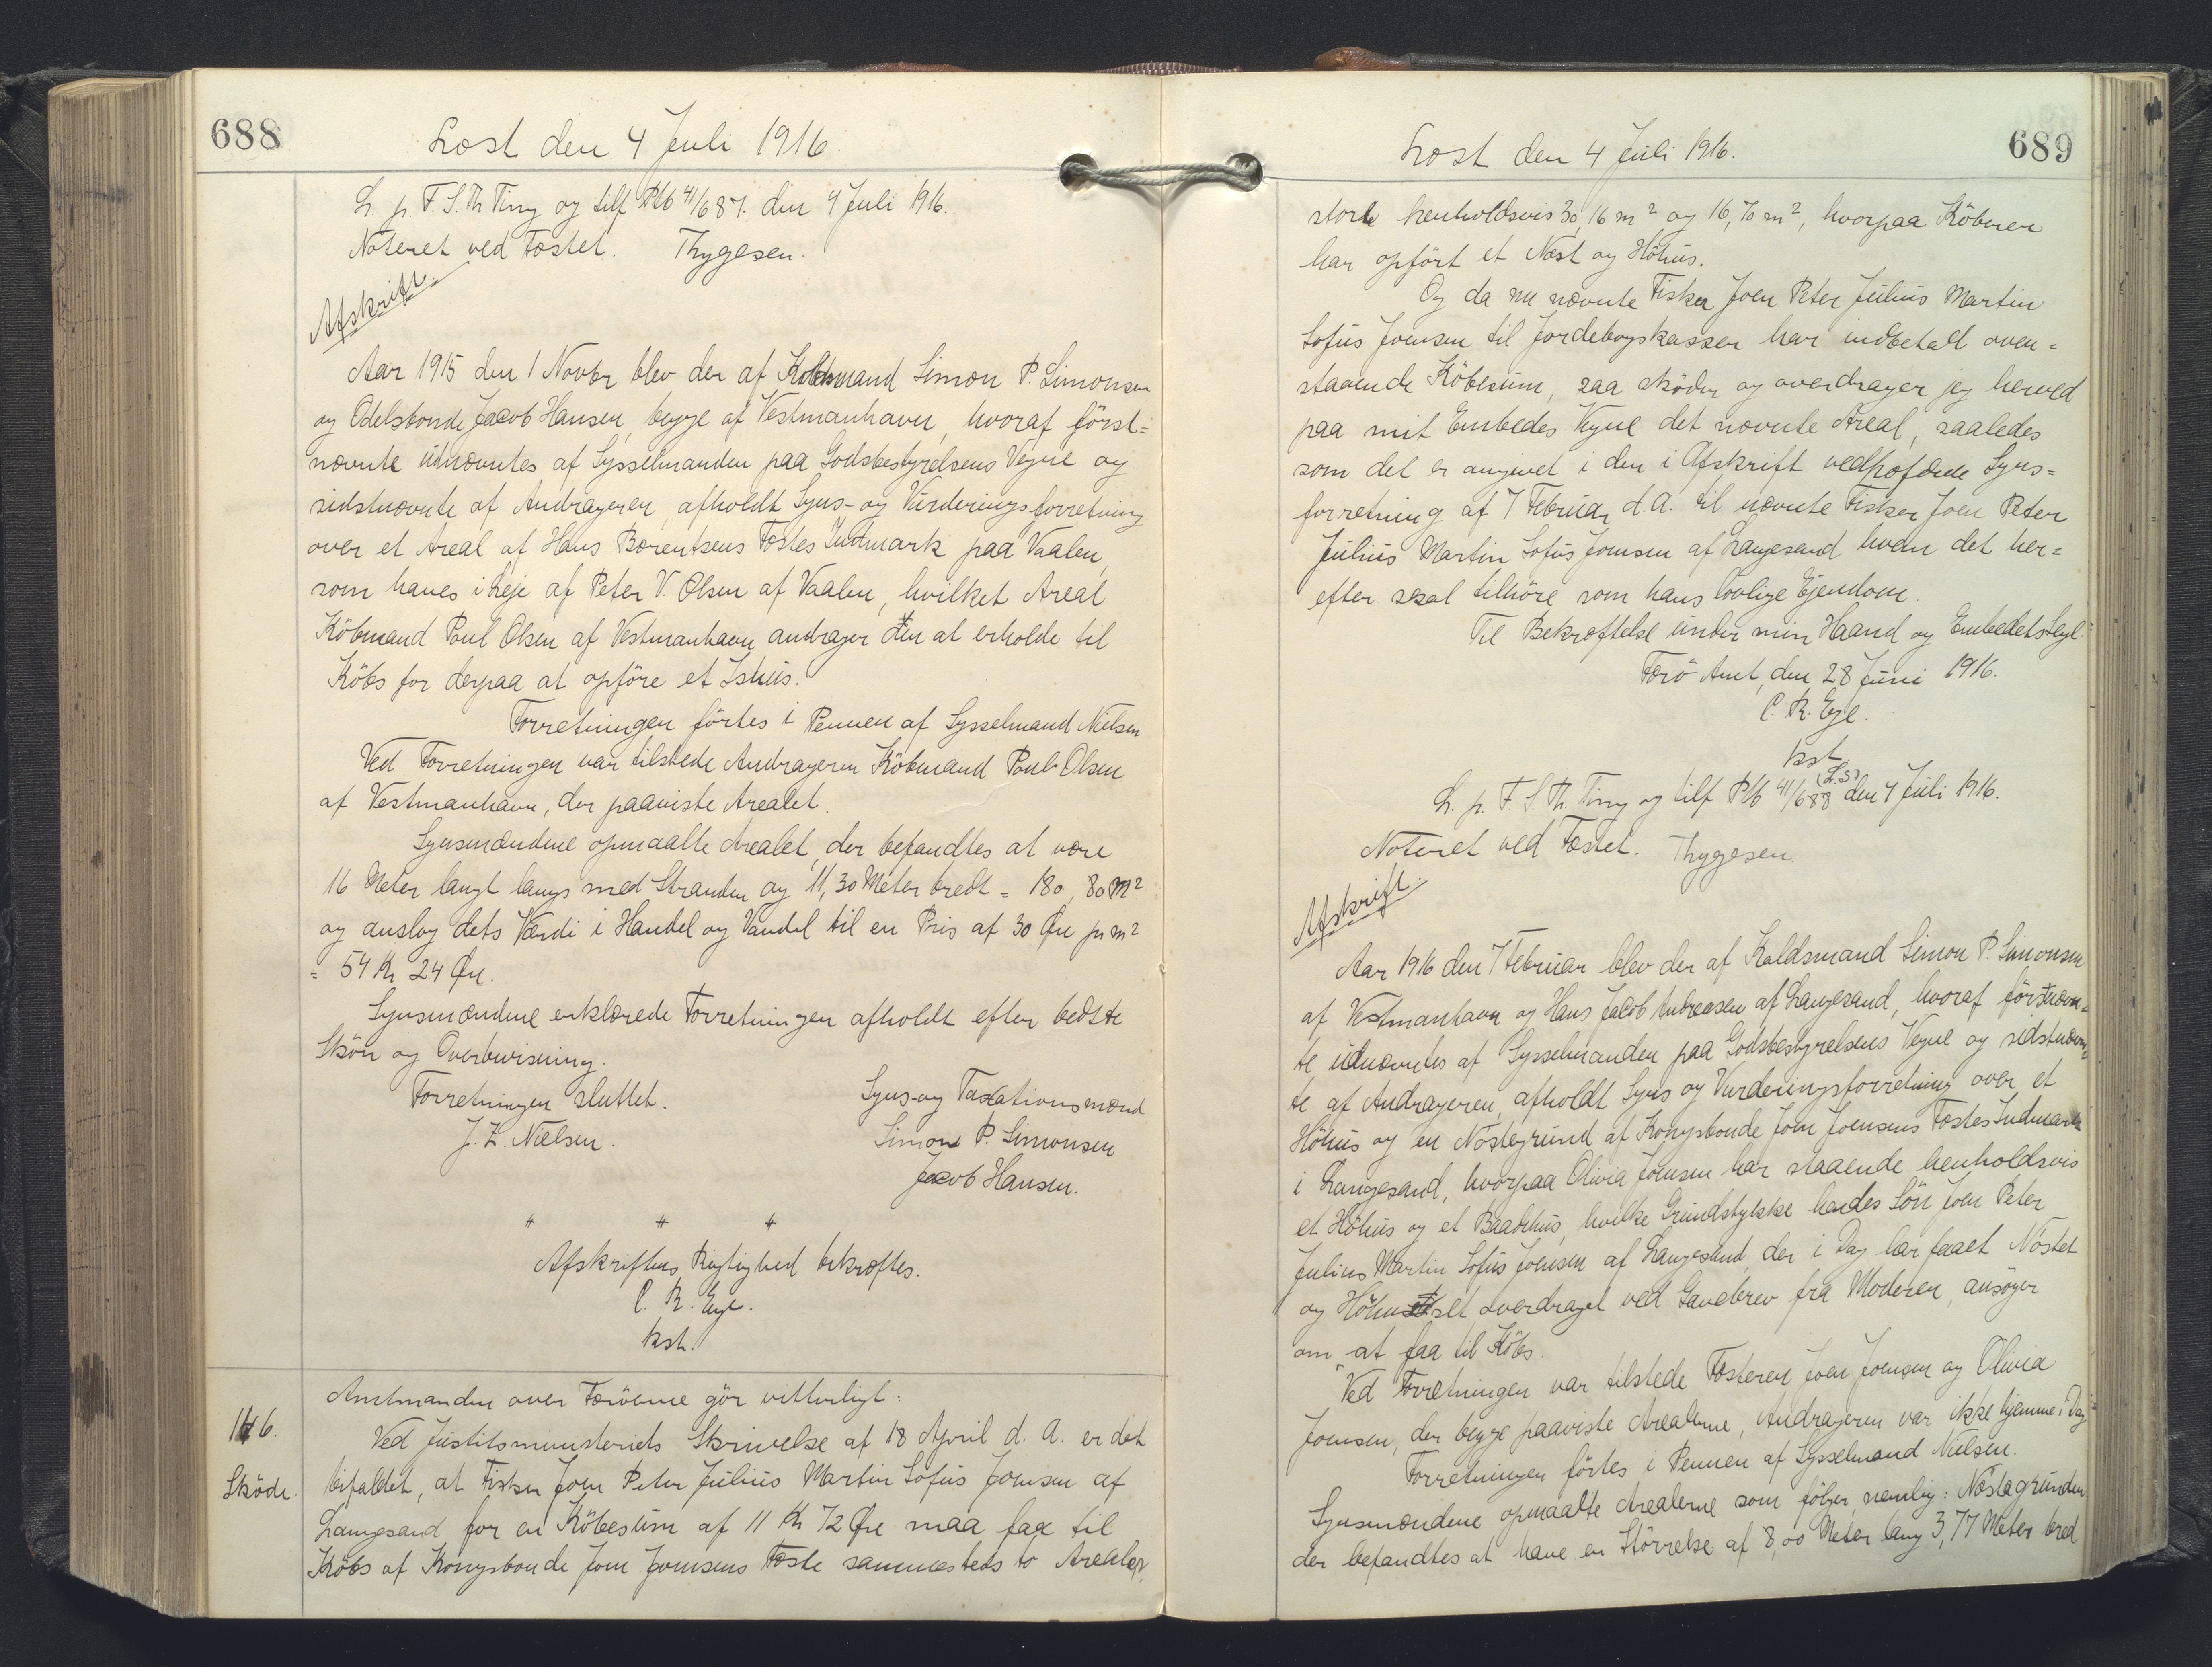 688
Læst den 4 Juli 1916.
L. p. F. S. Th. Ting og tilf Ptb 41/687. den 4 Juli 1916.
Noteret ved Fæstet. Thygesen.
Afskrift.
Aar 1915 den 1 Novbr blev der af Koldsmand Simon P. Simonsen
og Odelsbonde Jacob Hansen, begge af Vestmanhavn, hvoraf först=
nævnte udnævntes af Sysselmanden paa Godsbestyrelsens Vegne og
sidstnævnte af Andrageren, afholdt Syns- og Vurderingsforretning
over et Areal af Hans Bærentsens Fæstes Indmark paa Vaalen,
som haves i Leje af Peter V. Olsen af Vaalen, hvilket Areal
Köbmand Poul Olsen af Vestmanhavn andrager om at erholde til
Köbs for derpaa at opföre et Ishus.
Forretningen förtes i Pennen af Sysselmand Nielsen
Ved Forretningen var tilstede Andrageren Köbmand Poul Olsen
af Vestmanhavn, der paaviste Arealet.
Synsmændene opmaalte Arealet, der befandtes at være
16 Meter langt langs med Stranden og 11,30 Meter bredt = 180,80 m²
og anslog dets Værdi i Handel og Vandel til en Pris af 30 Öre pr m²
= 54 Kr 24 Öre.
Synsmændene erklærede Forretningen afholdt efter bedste
Skön og Overbevisning.
Forretningen sluttet. Syns-og Taxationsmænd
J. Z. Nielsen. Simon P. Simonsen
Jacob Hansen.
# # #
Afskriftens Rigtighed bekræftes.
C. R. Eye.
kst.
Amtmanden over Færöerne gör vitterligt:
116. Ved Justitsministeriets Skrivelse af 18 April d. A. er det
Sköde. bifaldet, at Fisker Joen Peter Julius Martin Sofus Joensen af
Langesand for en Köbesum af 11 Kr 72 Öre maa faa til
Köbs af Kongsbonde Joen Joensens Fæste sammesteds to Arealer,
689
Læst den 4 Juli 1916.
store henholdsvis 30,16 m² og 16,70 m², hvorpaa Köberen
har opfört et Nöst og Höhus.
Og da nu nævnte Fisker Joen Peter Julius Martin
Sofus Joensen til Jordebogskassen har indbetalt oven=
staaende Köbesum, saa sköder og overdrager jeg herved
paa mit Embedes Vegne det nævnte Areal, saaledes
som det er angivet i den i Afskrift vedhæftede Syns=
forretning af 7 Februar d. A. til nævnte Fisker Joen Peter
Julius Martin Sofus Joensen af Langesand hvem det her=
efter skal tilhöre som hans lovlige Ejendom.
Til Bekræftelse under min Haand og Embedets Segl.
Færö Amt, den 28 Juni 1916.
C. R. Eye.
kst.
(L.S)
L. p. F. S. Th. Ting og tilf Ptb 41/688 den 4 Juli 1916.
Noteret ved Fæstet. Thygesen.
Afskrift.
Aar 1916 den 7 Februar blev der af Koldsmand Simon P. Simonsen
af Vestmanhavn og Hans Jacob Andreasen af Langesand, hvoraf förstnævn=
te udnævntes af Sysselmanden paa Godsbestyrelsens Vegne og sidstnævn=
te af Andrageren, afholdt Syns og Vurderingsforretning over et
Höhus og en Nöstegrund af Kongsbonde Joen Joensens Fæstes Indmark
i Langesand, hvorpaa Olivia Joensen har staaende henholdsvis
et Höhus og et Baadehus, hvilke Grundstykke hendes Sön Joen Peter
Julius Martin Sofus Joensen af Langesand, der i Dag har faaet Nöstet
og Höhuset overdraget ved Gavebrev fra Moderen, ansöger
om at faa til Köbs.
Ved Forretningen var tilstede Fæsteren Joen Joensen og Olivia
Joensen, der begge paaviste Arealerne, Andrageren var ikke hjemme i Dag.
Forretningen förtes i Pennen af Sysselmand Nielsen.
Synsmændene opmaalte Arealerne som fölger nemlig: Nöstegrunden
der befandtes at have en Störrelse af 8,00 Meter lang 3,77 Meter bred